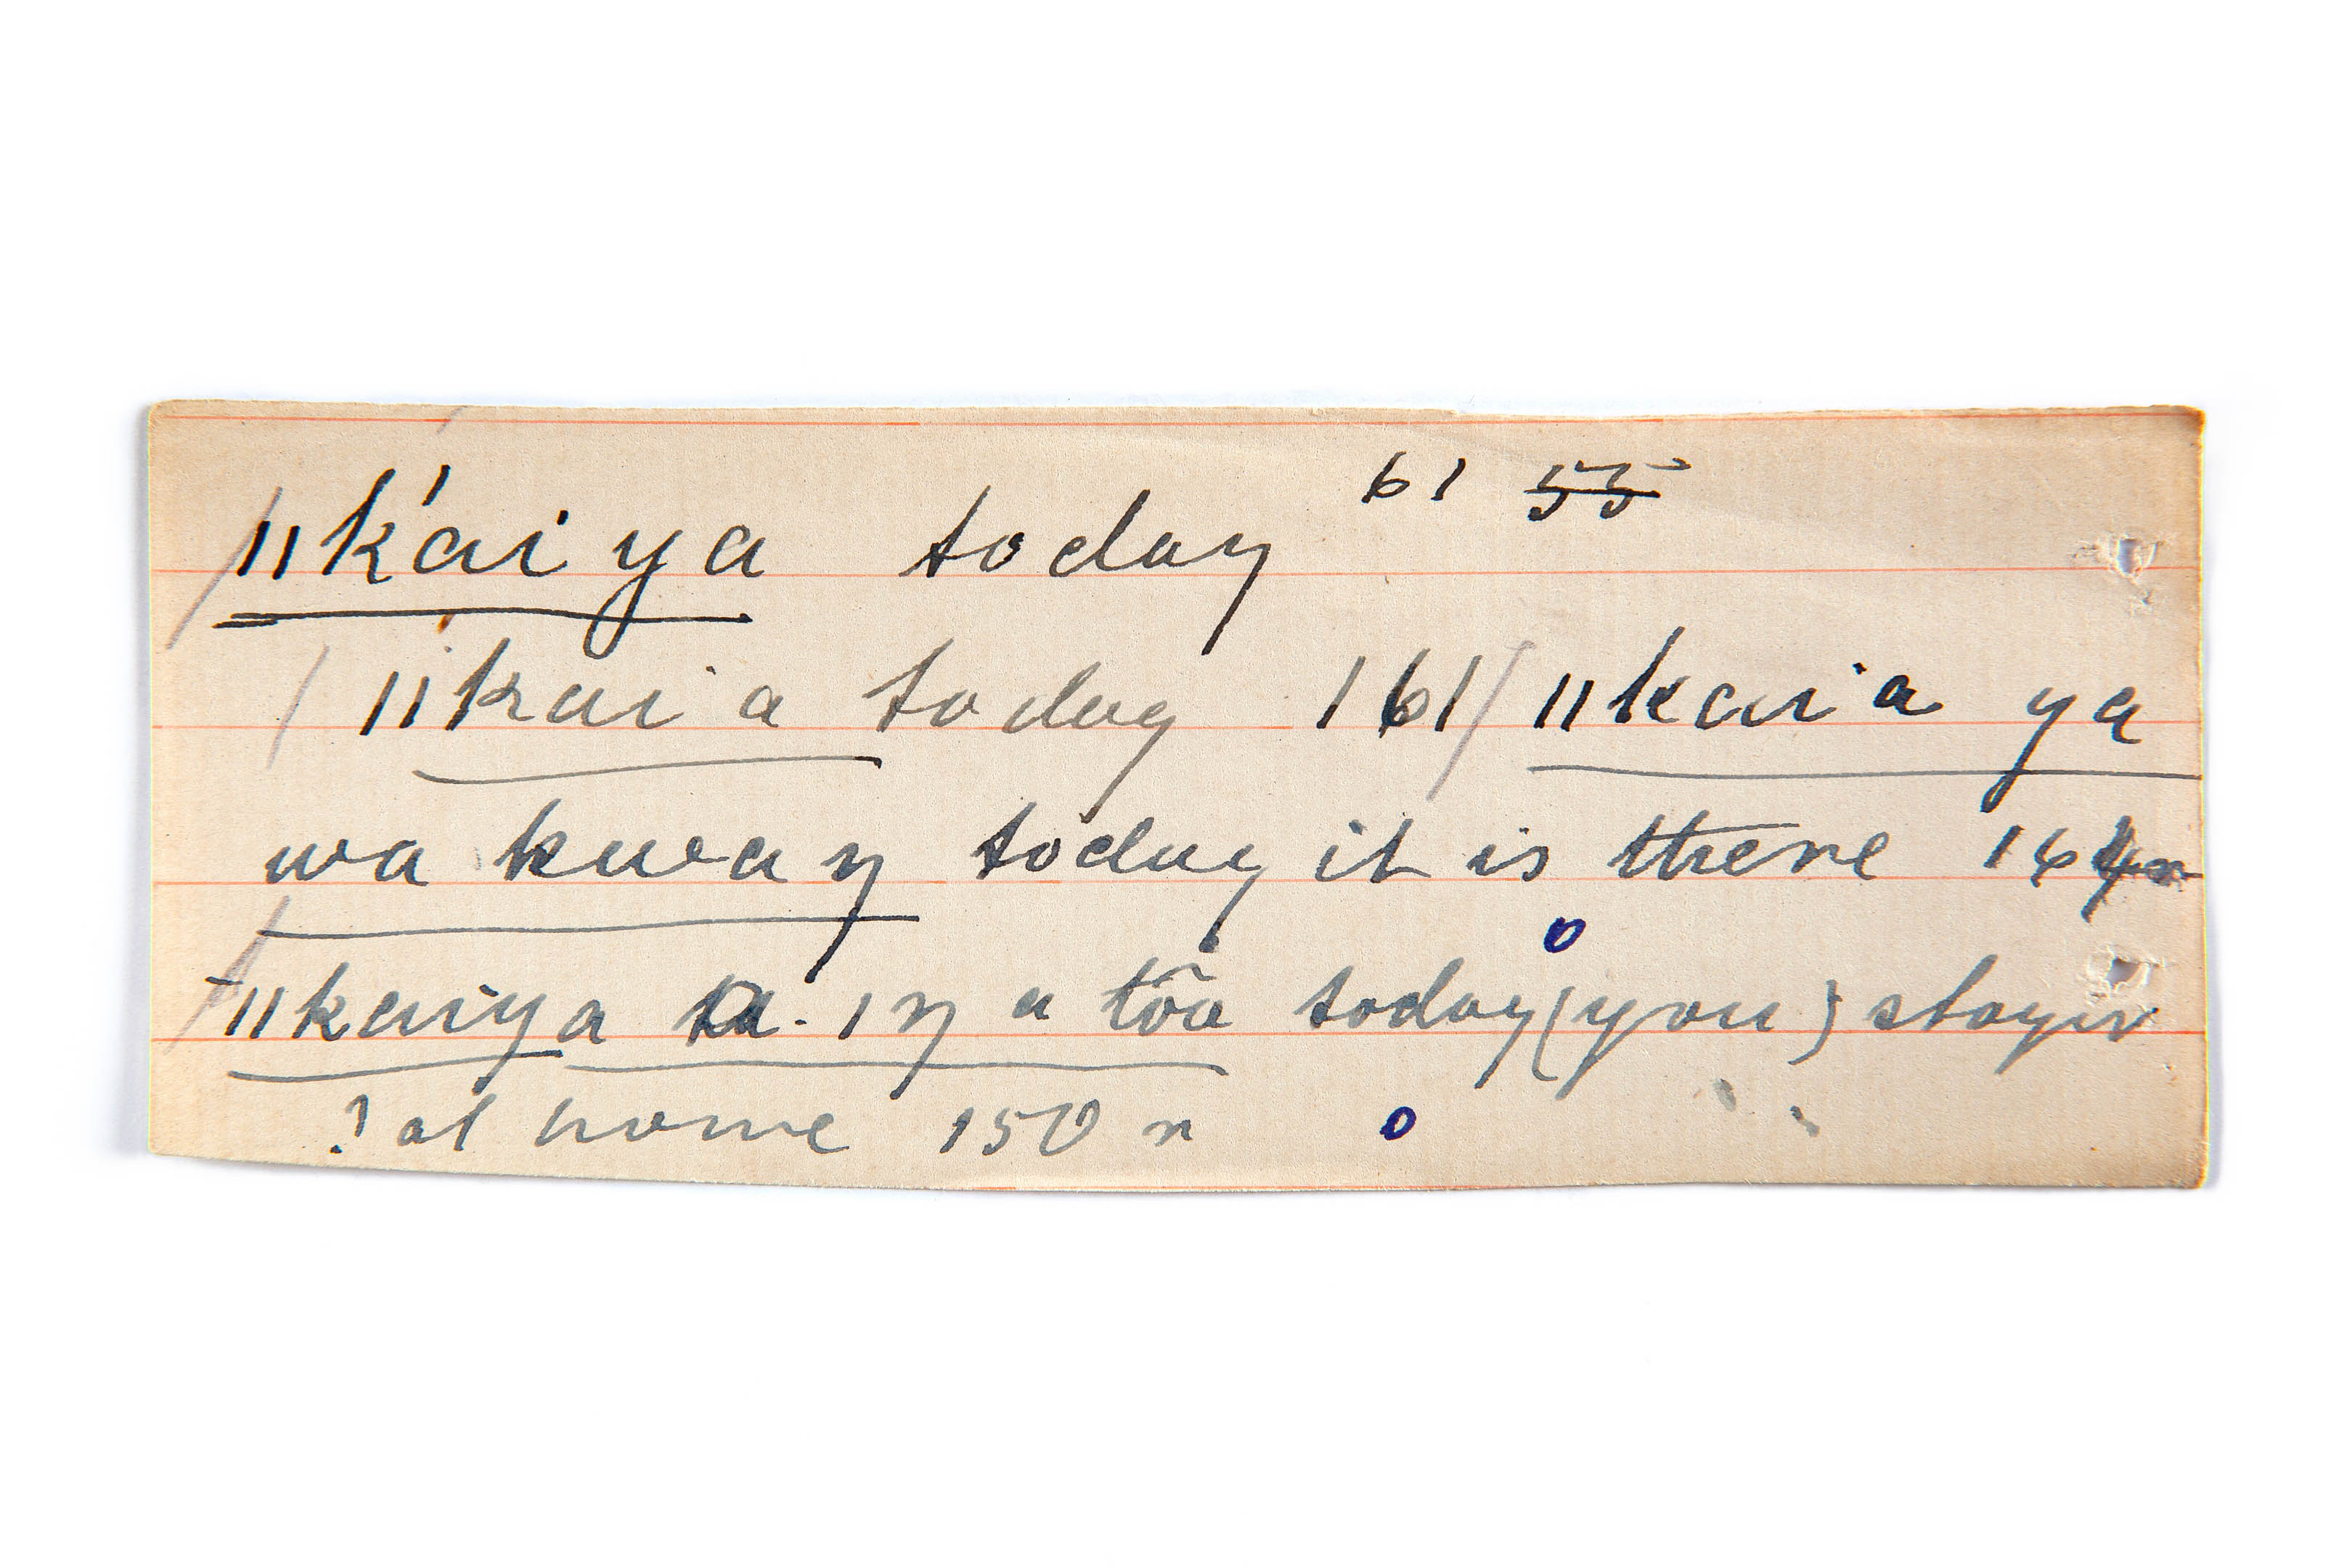 ǁk'aiya today 61 55
ǁkaia today 161 ǁkaia ya
wa kwaŋ today it is there
ǁkaiya a tôa today (you) stay
? at home 150 r